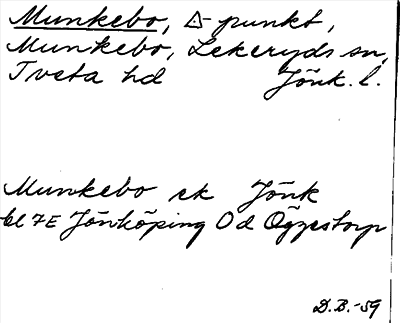 Munkebo, △-punkt,
Munkebo, Lekeryds sn,
Tveta hd Jönk. l.
Munkebo ek Jönk
bl 7E Jönköping Od Öggestorp
D.B.-59